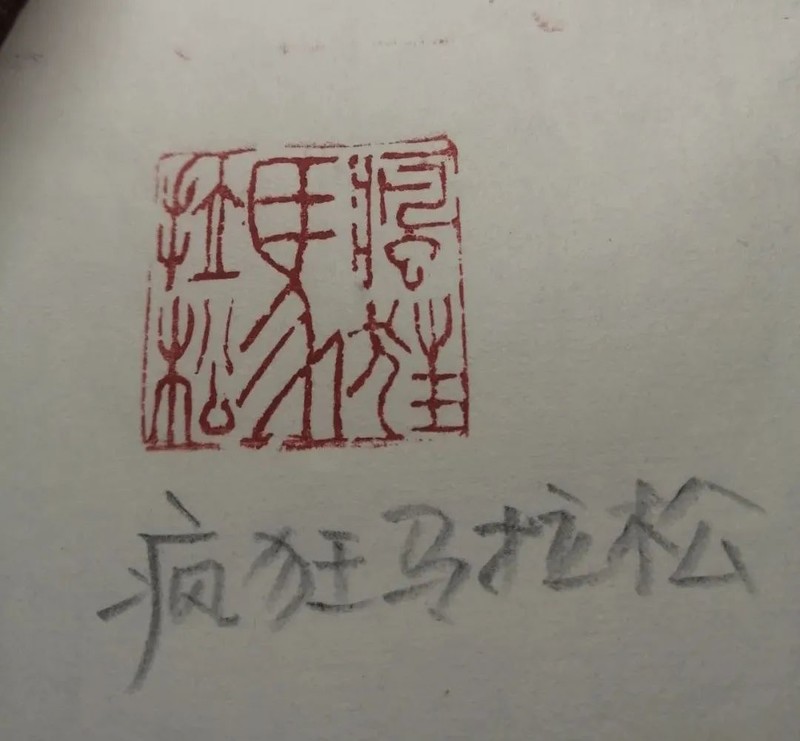 瘋狂馬拉松
疯狂马拉松